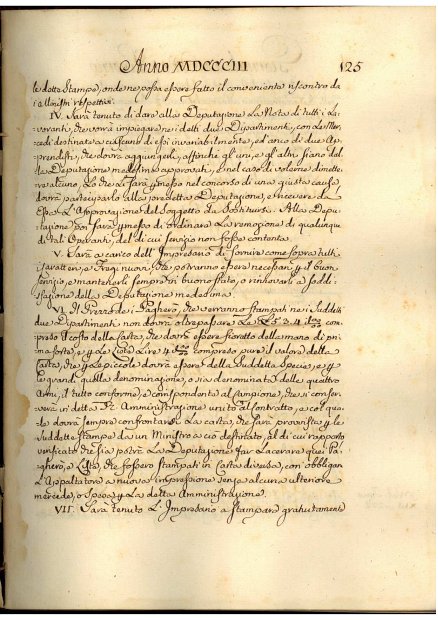 Anno MDCCCIII 125
le dette Stampe, onde ne possa essere fatto il conveniente riscontro da
i Ministri rispettivi.
IV. Sarà tenuto di dare alla Deputazione La Nota di tutti i La-
voranti, che vorrà impiegare nei detti due Dipartimenti, con Le Mer-
cedi destinate a ciascuno di essi invariabilmente, ed anco di due Ap-
prendisti, che dovrà aggiungerli, affinchè gli uni, e gli altri siano dal-
la Deputazione medesima approvati, e nel caso di volerne dimette-
re alcuno, Lo che Li sarà permesso nel concorso di una giusta causa
dovrà parteciparlo alla predetta Deputazione, e ricevere da
Essa L'Approvazione del Soggetto da Sostituirsi. Alla Depu-
tazione poi sarà permesso di ordinare La remozione di qualunque
di tali Operanti, del di cui servizio non fosse contenta.
V. Sarà a carico dell'Impresario di fornire come sopra tutti
i Caratteri, e Fregi nuovi, che potranno essere necessari per il buon
servizio, e mantenerli sempre in buono stato, o rinnovarli a soddi-
sfazione della Deputazione medesima.
VI. Il Prezzo de i Pagherò, che verranno stampati ne i suddetti
due Dipartimenti non dovrà oltrepassare Le 5 3 4 com-
preso il costo della Carta, che dovrà essere fioretto della mano di pri-
ma sorte, e per le Liste Lire 4 compreso pure il valore della
Carta, che per Le piccole dovrà essere della suddetta specie, e per
Le grandi quella denominazione, o sia denominata delle quattro
Armi, il tutto conforme, e corrispondente al Campione, che si conser-
verà in detta Amministrazione unito al Contratto, e col qua-
le dovrà sempre confrontarsi La carta, che sarà provvista per le
suddette Stampe da un Ministro a ciò destinato, al di cui rapporto
verificato che sia potrà La Deputazione far Lacerare quei Pa-
gherò, e Liste, che fossero stampati in Carta diversa, con obbligare
L'Appaltatore a nuova impressione senza alcuna ulteriore
mercede, o spesa per La detta Amministrazione.
VII. Sarà tenuto L'Impresario a stampare gratuitamente